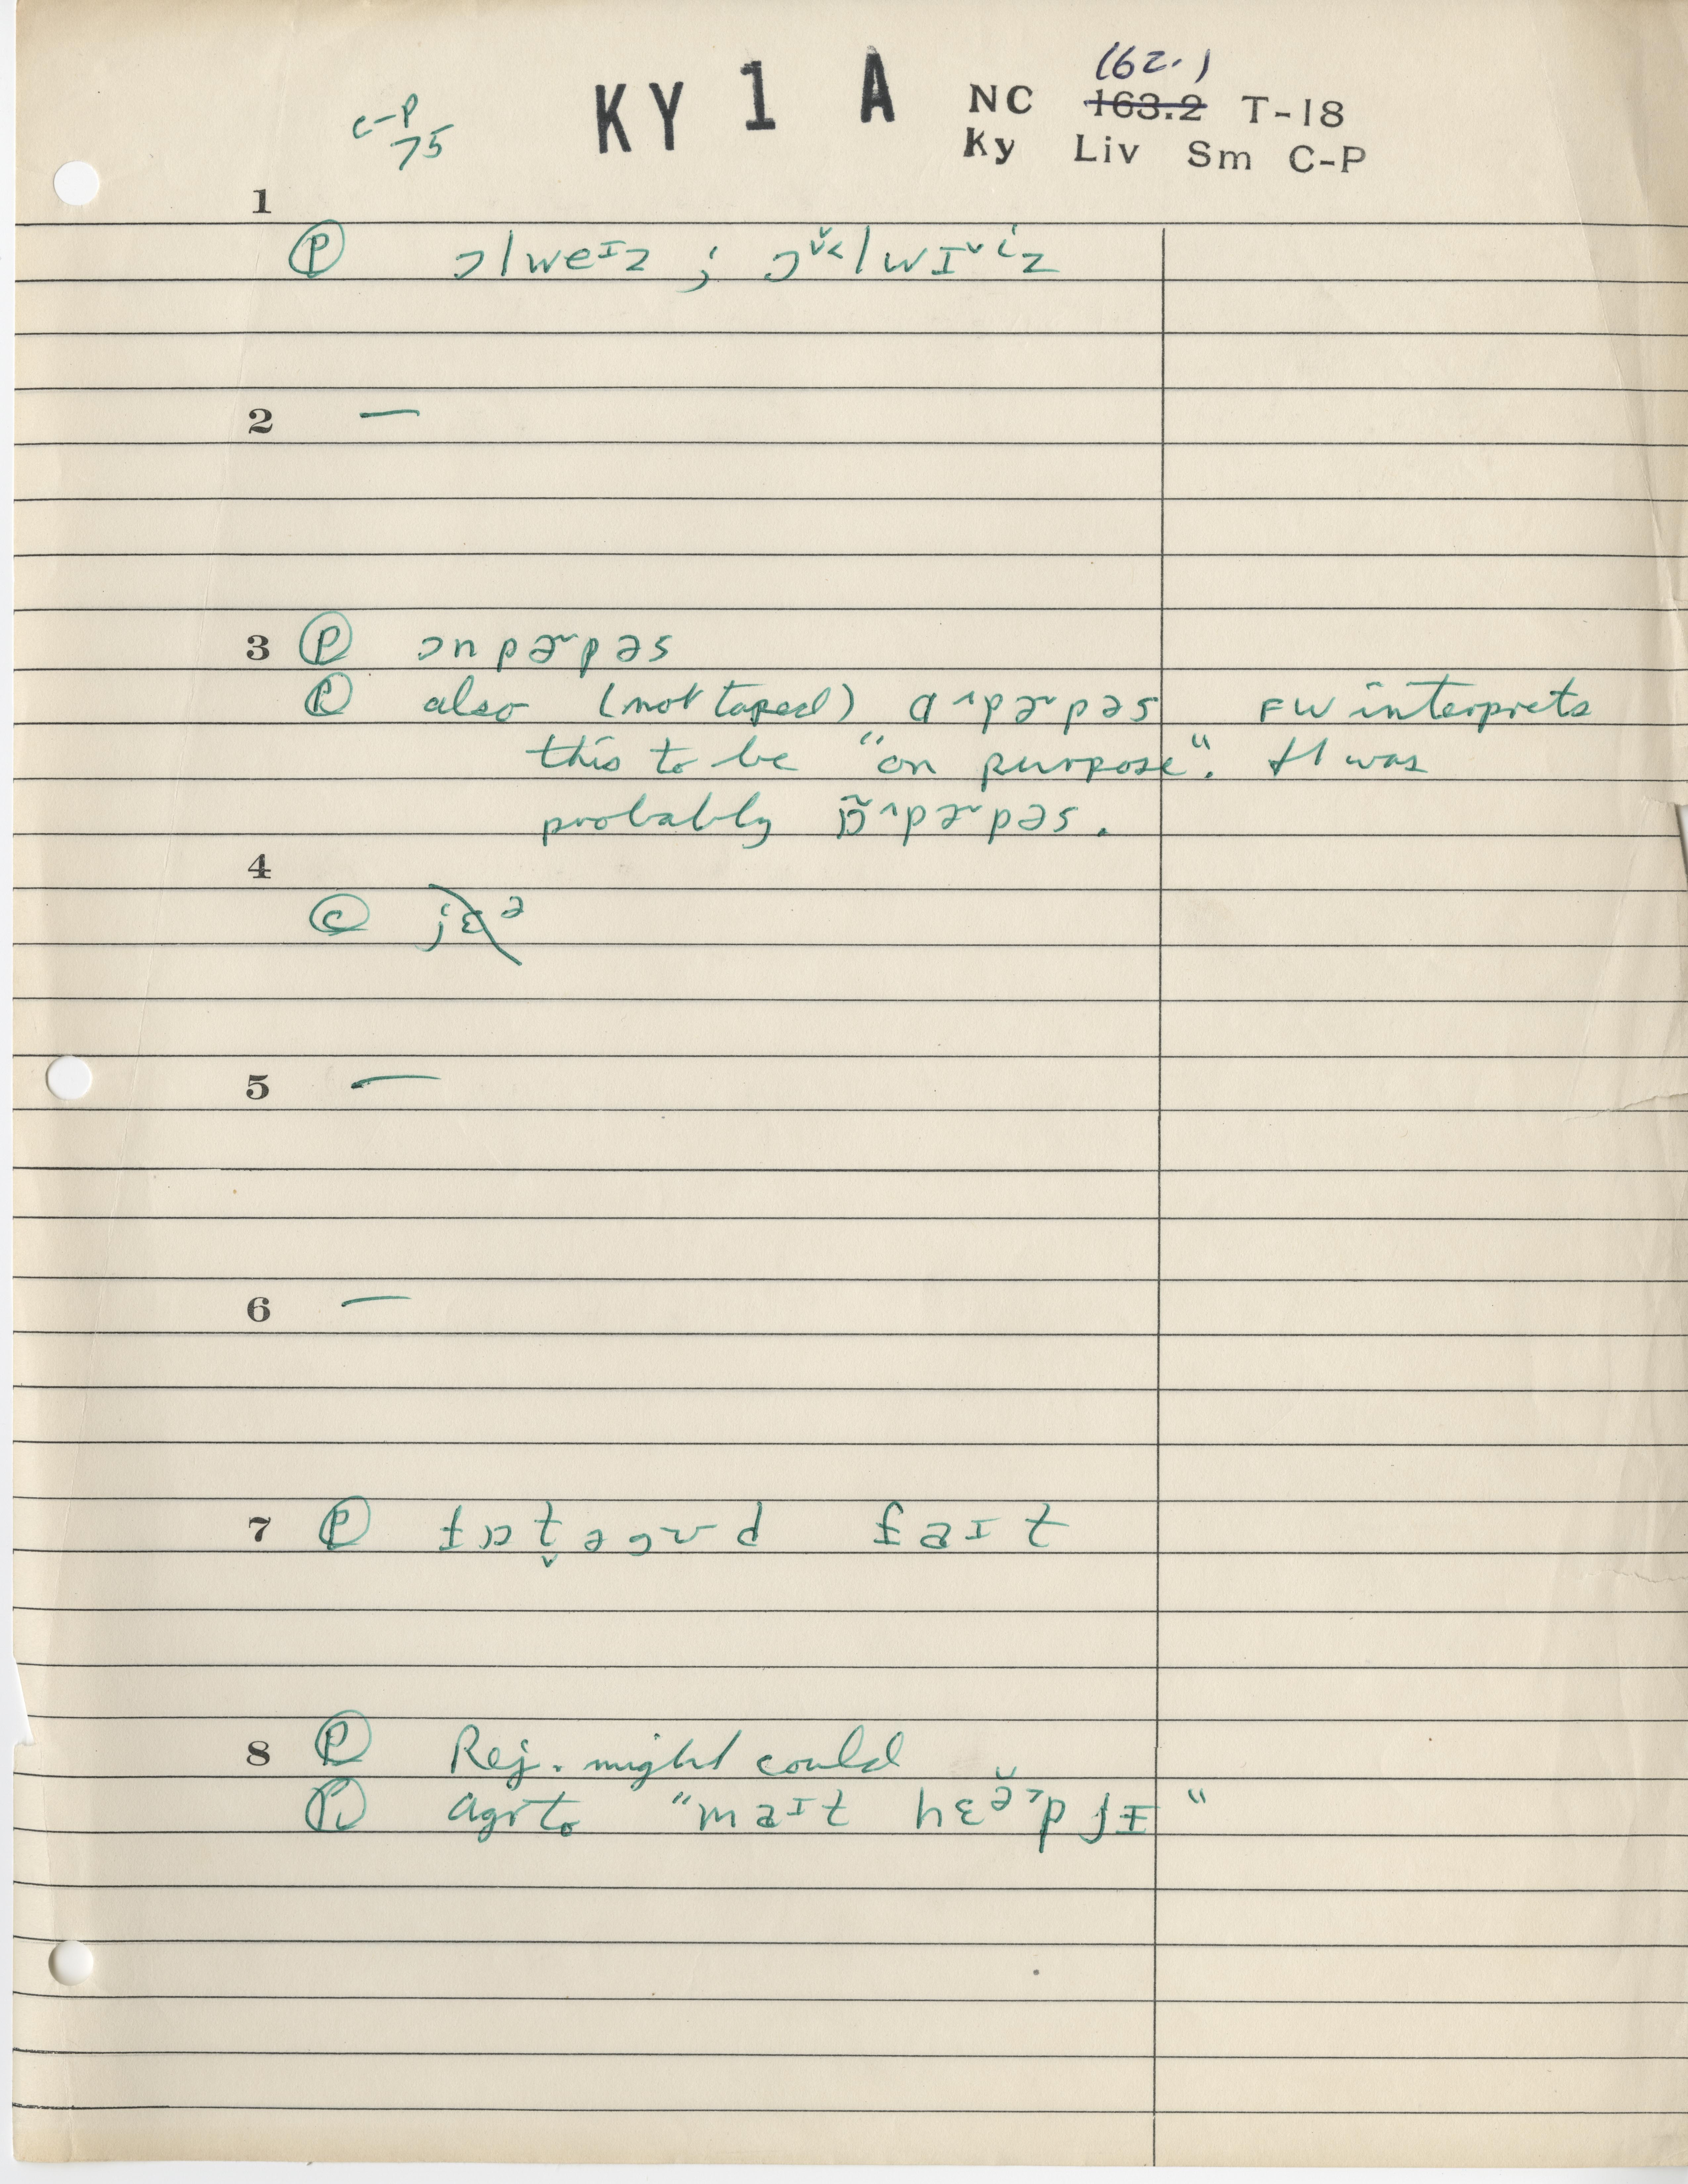 (62.)
KY 1 A NC 163.2 T-18
C-P
75
Ky Liv Sm C-P
1
Ⓟ ɔlweᴵz ; ɔᵛ˂lwɪᵛⁱz
2 —
3 Ⓟ ɔnpɚpəs
Ⓟ also (not taped) pɚpəs FW interprets
this to be "on purpose". It was
probably pɚpəs.
4
Ⓒ jɛᵊ
5 —
6 —
7 Ⓟ
8 Ⓟ Rej. might could
Ⓟ agr to